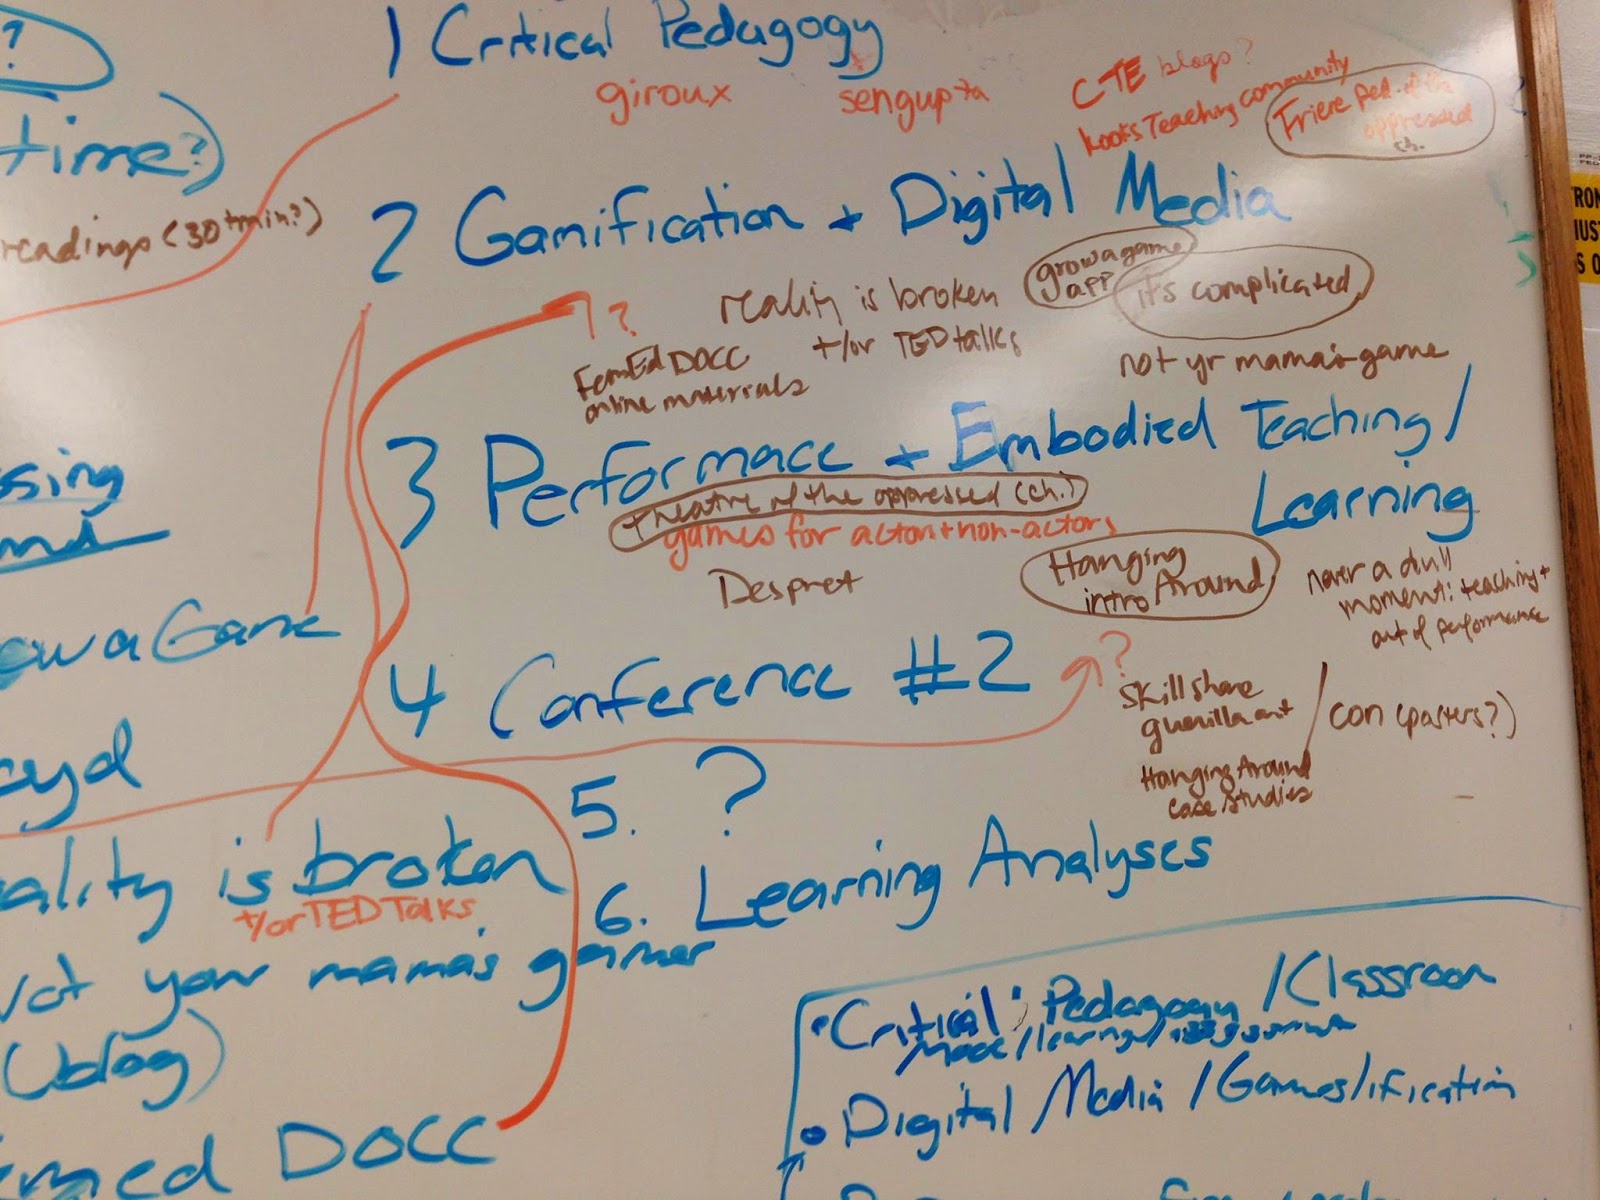 ?
time?)
readings (30+min?)
1 Critical Pedagogy
giroux
sengupta
CTE blogs?
hooks Teaching community
Friere ped. of the
oppressed
ch.
2 Gamification + Digital Media
growagame
app
it's complicated
? reality is broken
+/or TED talks
FemEd DOCC
online materials
not yr mama's game
3 Performace + Embodied Teaching/
Learning
theatre of the oppressed (ch.)
games for actor+non-actors
Despret
Hanging
intro Around
never a dull
moment: teaching +
art of performance
4 Conference #2
?
skillshare
guerilla art
Hanging Around
case studies
/ con (posters?)
5. ?
6. Learning Analyses
ssing
ow a Game
oyd
ality is broken
+/or TED Talks
Not your mama's gamer
(blog)
emed DOCC
• Critical Pedagogy /Classroom
• Digital Media /Games/ification